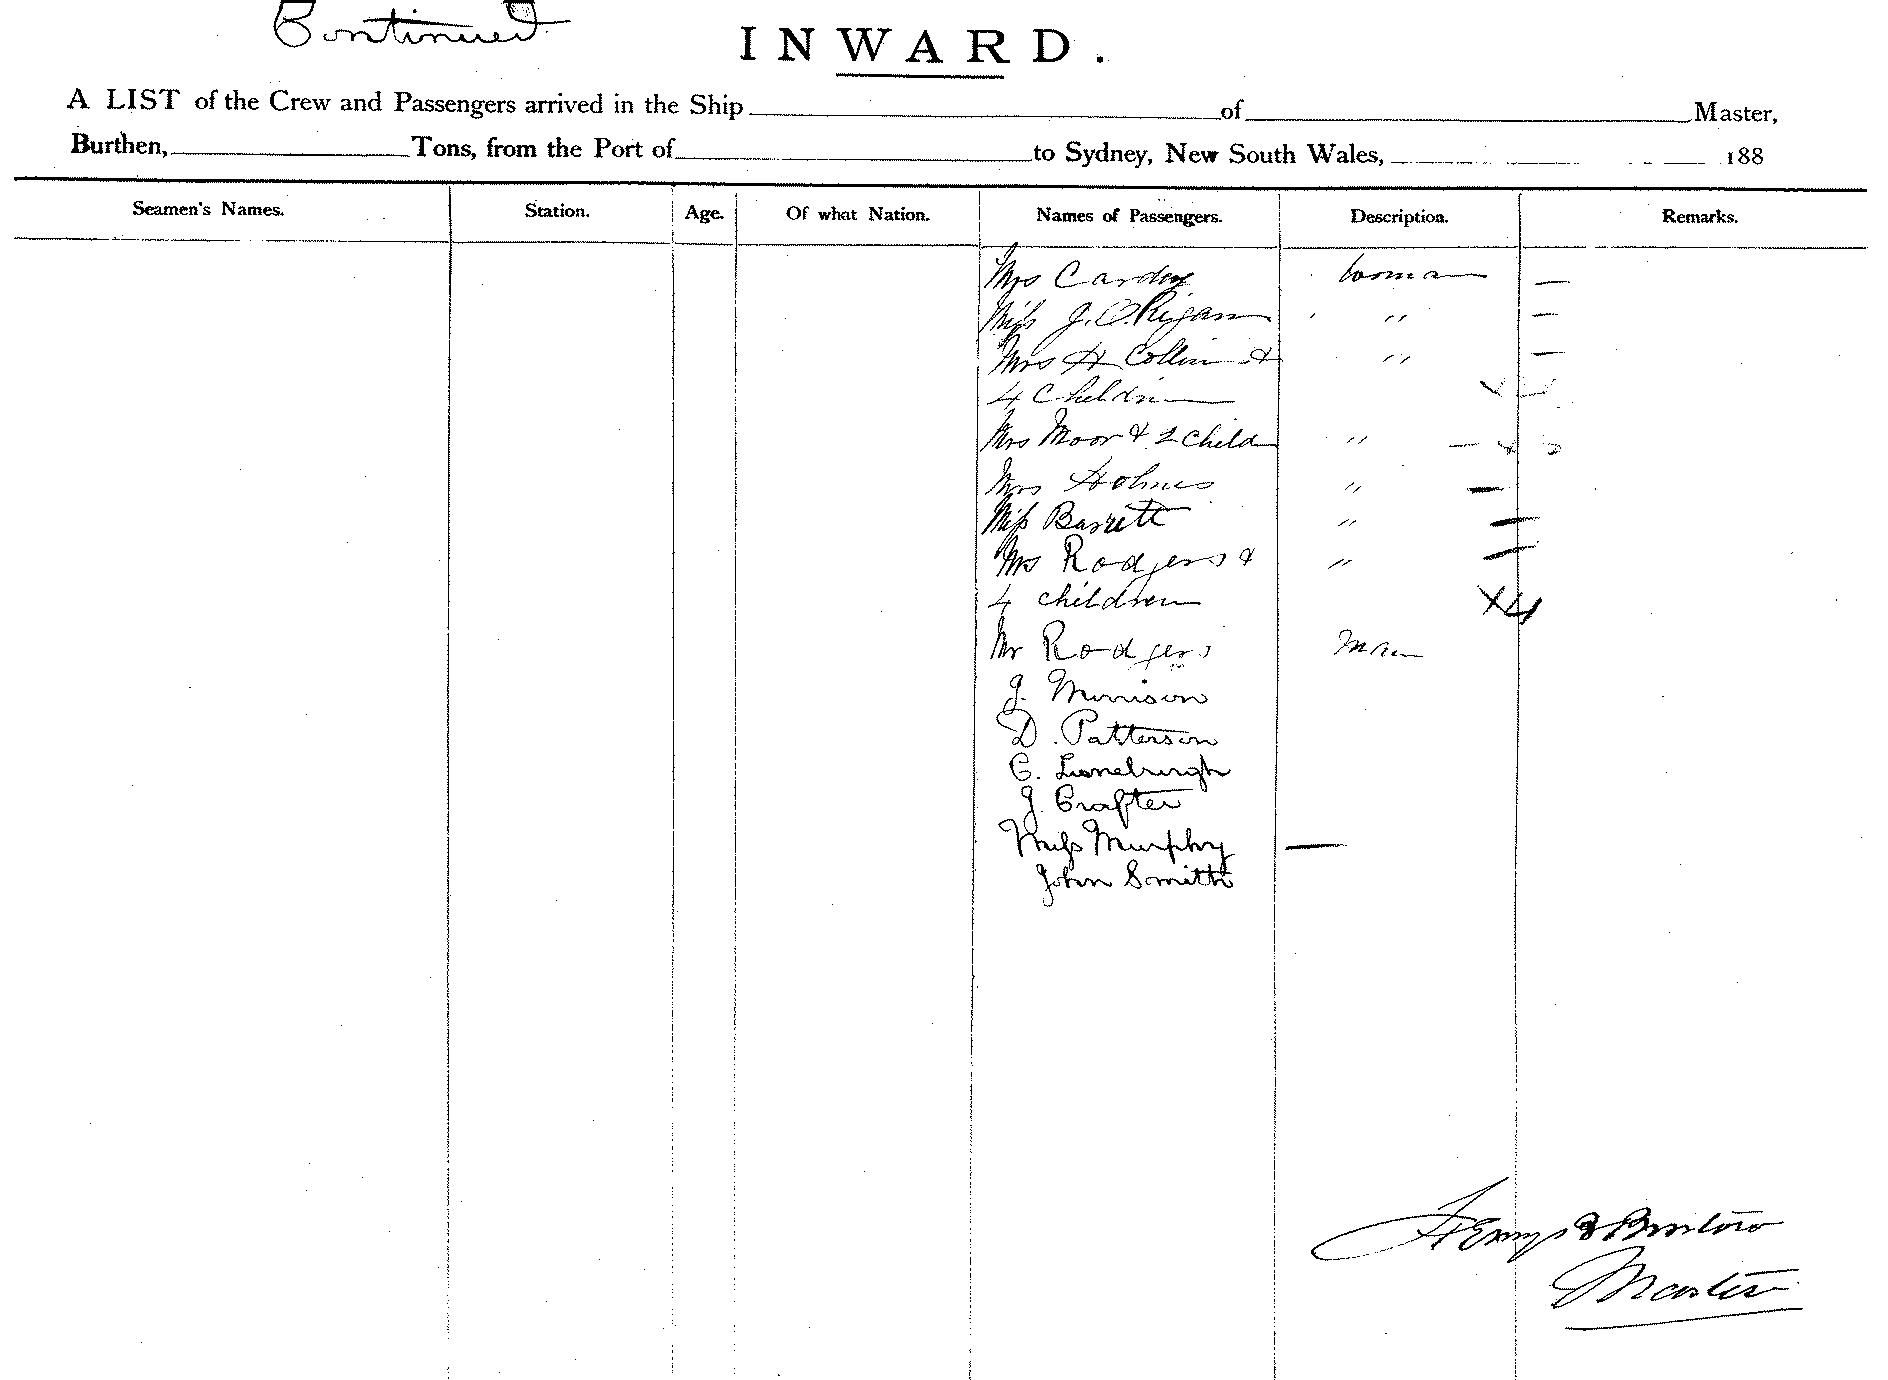 Continued
INWARD.
A LIST of the Crew and Passengers arrived in the Ship of Master,
Burthen, Tons, from the Port of to Sydney, New South Wales, 188
Seamen's Names. Station. Age. Of what Nation. Names of Passengers. Description. Remarks.
Mrs Woman —
Miss J. O. Rigan " —
Mrs H Collin & " —
4 Children x 4
Mrs Moor & 2 Child " — x 2
Mrs Holmes " —
Miss Barrett " —
Mrs Rodgers & " —
4 children x4
Mr Rodgers Man
J. Morrison
D. Patterson
C.
J. Crafter
Miss Murphy —
John Smith
Henry
Master